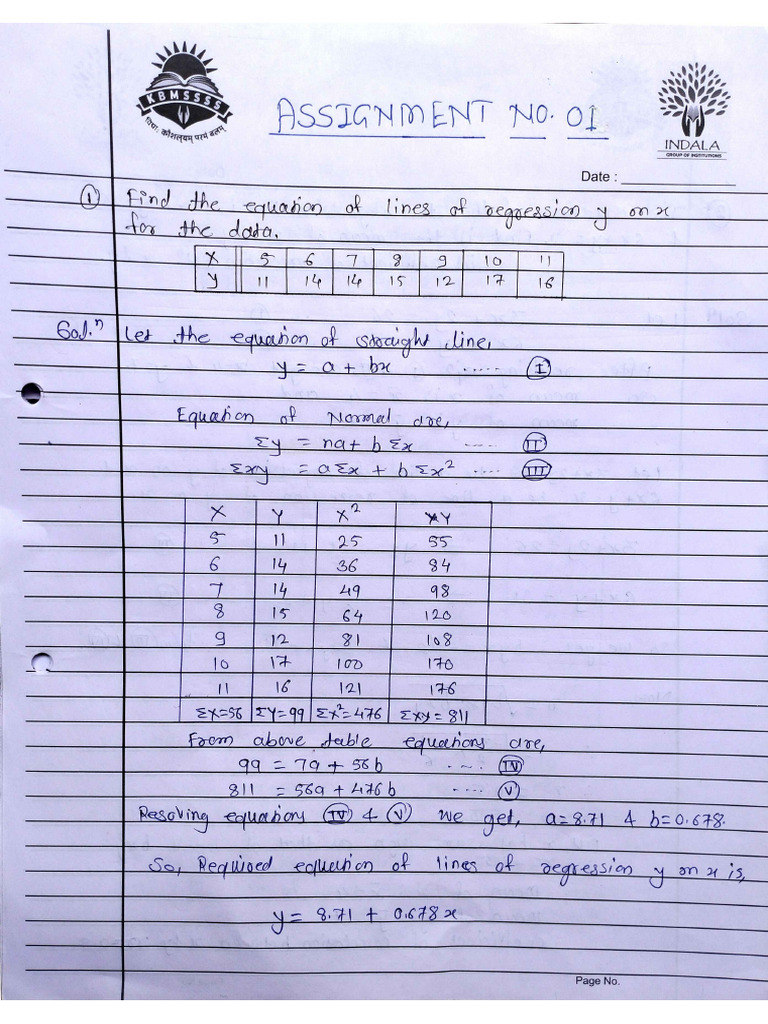 KBMSSSS
विद्या: कौशल्यम् परमं बलम्
ASSIGNMENT NO. 01
INDALA
GROUP OF INSTITUTIONS
Date :
① Find the equation of lines of regression y on x
for the data.
X 5 6 7 8 9 10 11
Y 11 14 14 15 12 17 16
Solⁿ. Let the equation of straight line,
y = a + bx ..... Ⓘ
Equation of Normal are,
Σy = na + bΣx .... (II)
Σxy = aΣx + bΣx² .... (III)
X Y X² XY
5 11 25 55
6 14 36 84
7 14 49 98
8 15 64 120
9 12 81 108
10 17 100 170
11 16 121 176
ΣX=56 ΣY=99 ΣX²=476 ΣXY=811
From above table equations are,
99 = 7a + 56b .... (IV)
811 = 56a + 476b .... (V)
Resolving equations (IV) & (V) we get, a=8.71 & b=0.678.
So, Required equation of lines of regression y on x is,
y = 8.71 + 0.678x
Page No.